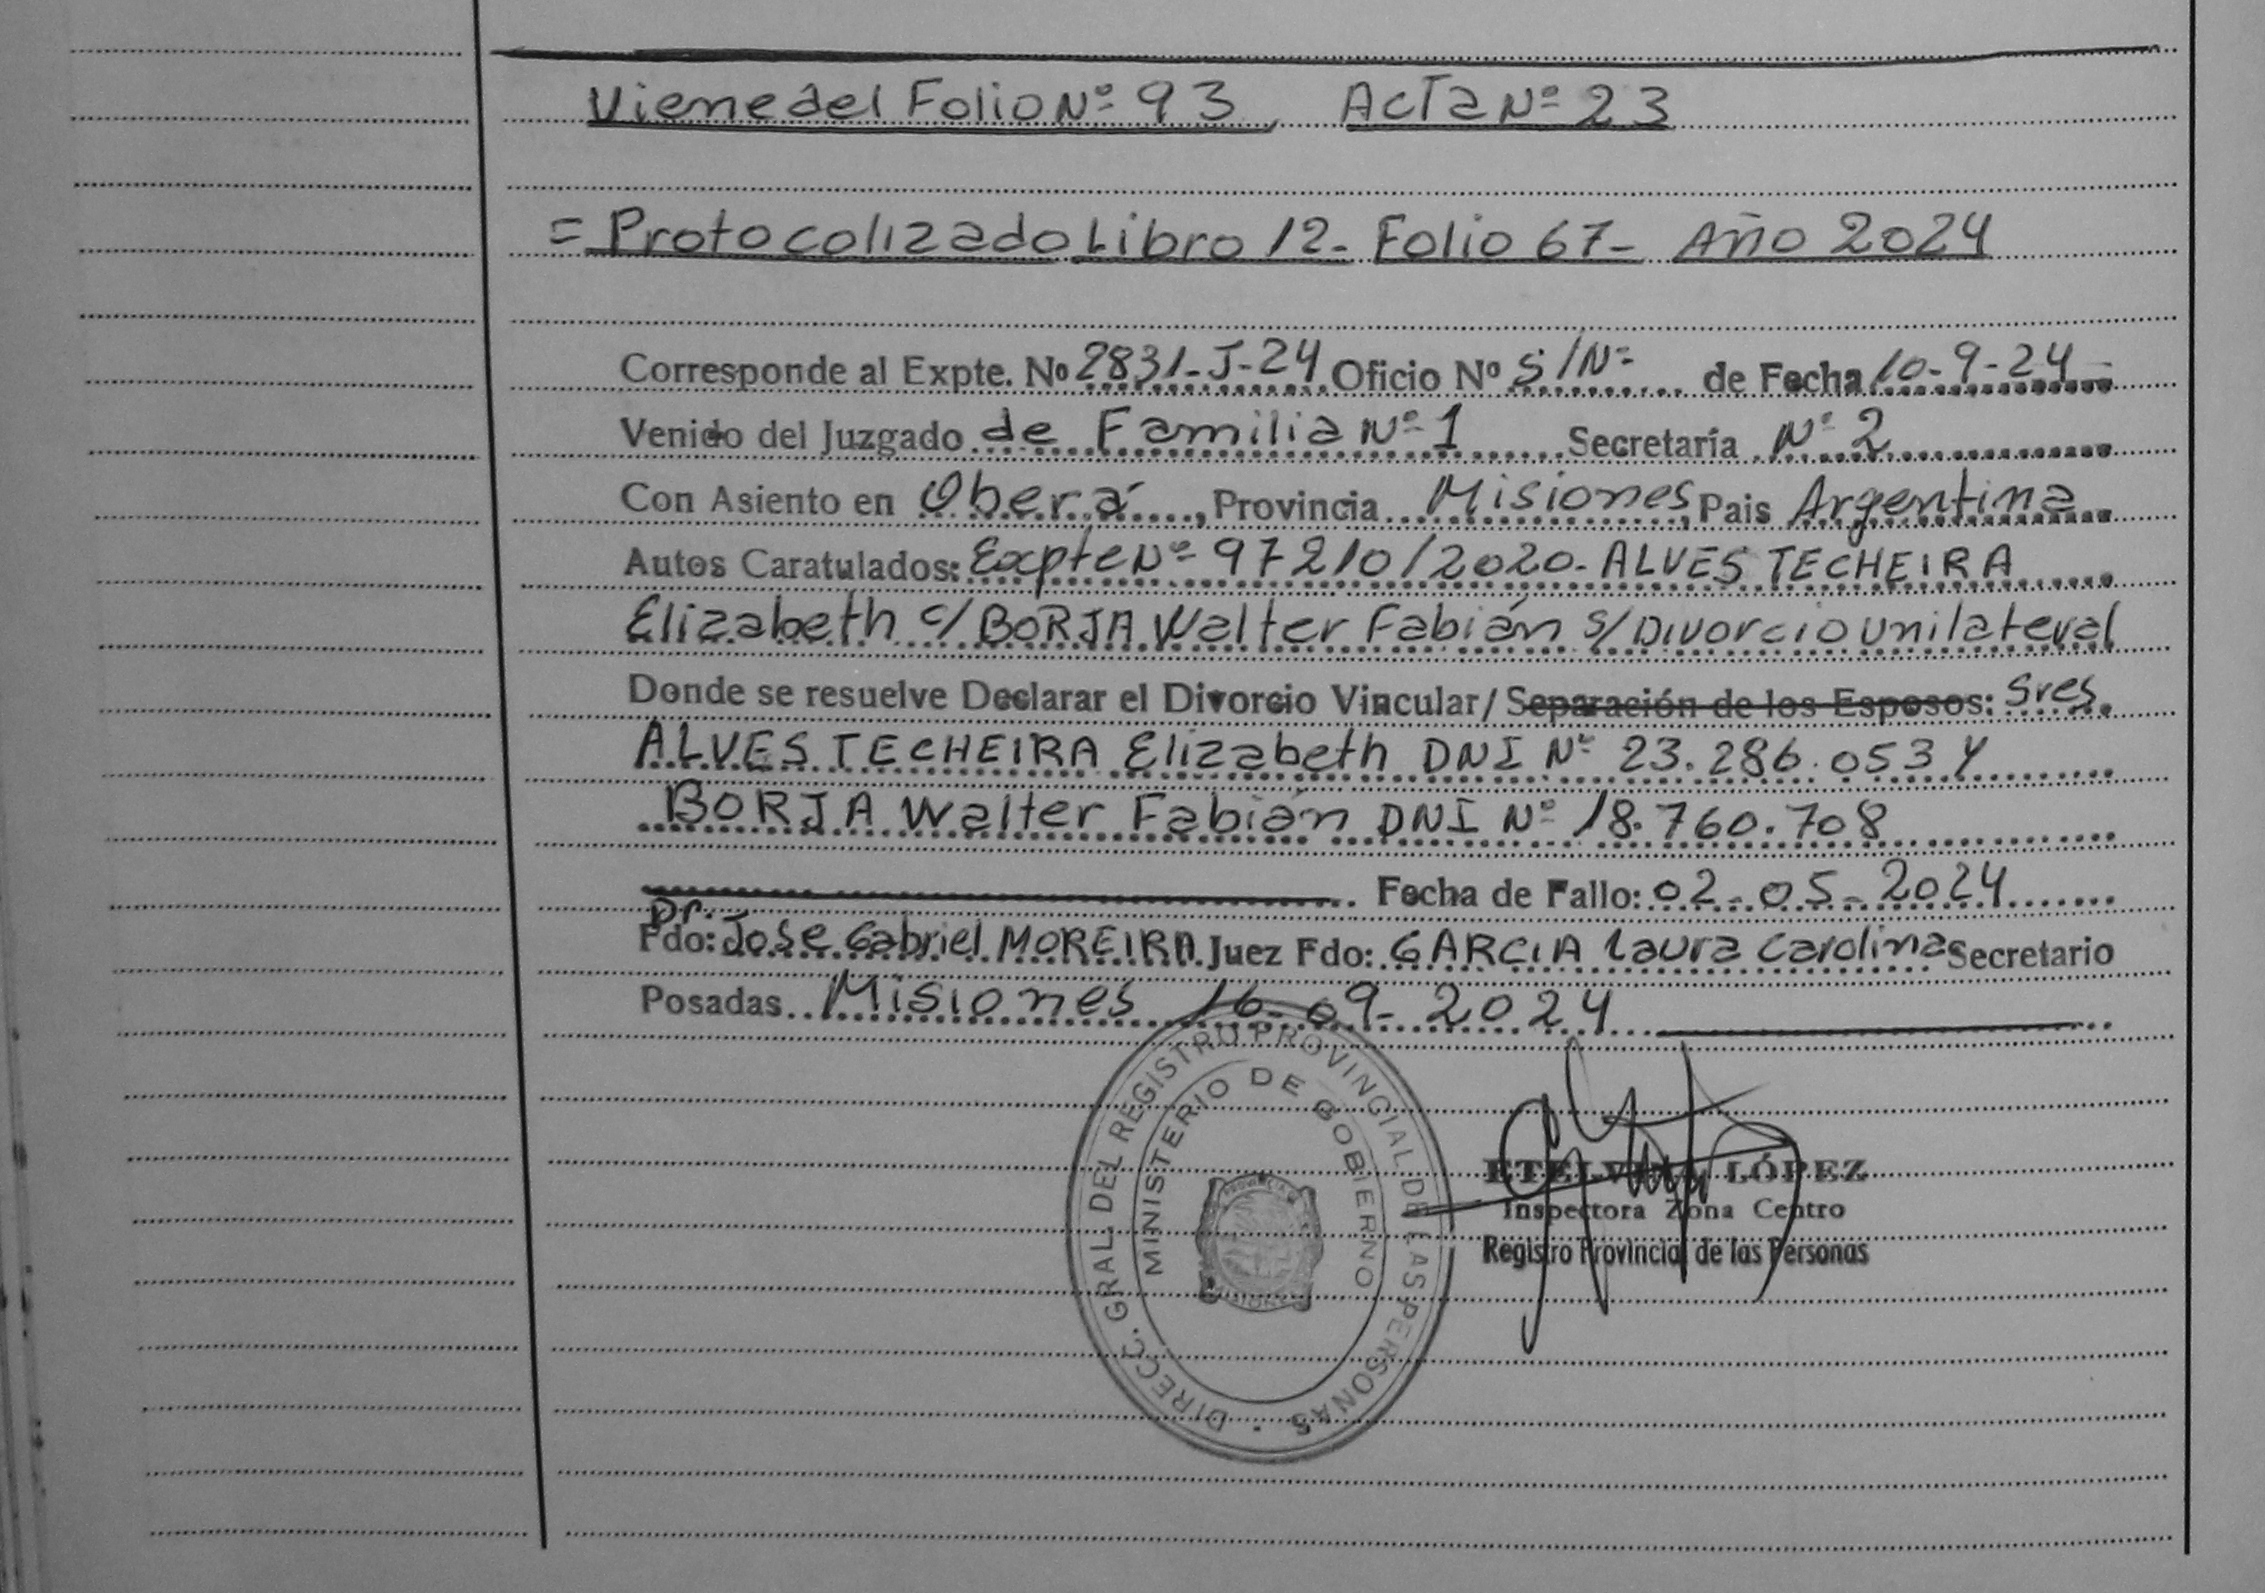 Viene del Folio Nº 93, Acta Nº 23
= Protocolizado Libro 12- Folio 67- Año 2024
Corresponde al Expte. Nº 2831-J-24 Oficio Nº S/Nº de Fecha 10-9-24-
Venido del Juzgado de Familia Nº 1 Secretaría Nº 2
Con Asiento en Oberá, Provincia Misiones, Pais Argentina
Autos Caratulados: Expte Nº 97210/2020- ALVES TECHEIRA
Elizabeth c/ BORJA Walter Fabián s/ Divorcio unilateral
Donde se resuelve Declarar el Divorcio Vincular/ Separación de los Esposos: Sres.
ALVES TECHEIRA Elizabeth DNI Nº 23.286.053 Y
BORJA Walter Fabián DNI Nº 18.760.708
Fecha de Fallo: 02-05-2024
Dr.
Fdo: Jose Gabriel MOREIRA. Juez Fdo: GARCIA Laura Carolina Secretario
Posadas Misiones 16-09-2024
DIRECC. GRAL. DEL REGISTRO PROVINCIAL DE LAS PERSONAS
MINISTERIO DE GOBIERNO
ETELVINA LÓPEZ
Inspectora Zona Centro
Registro Provincial de las Personas